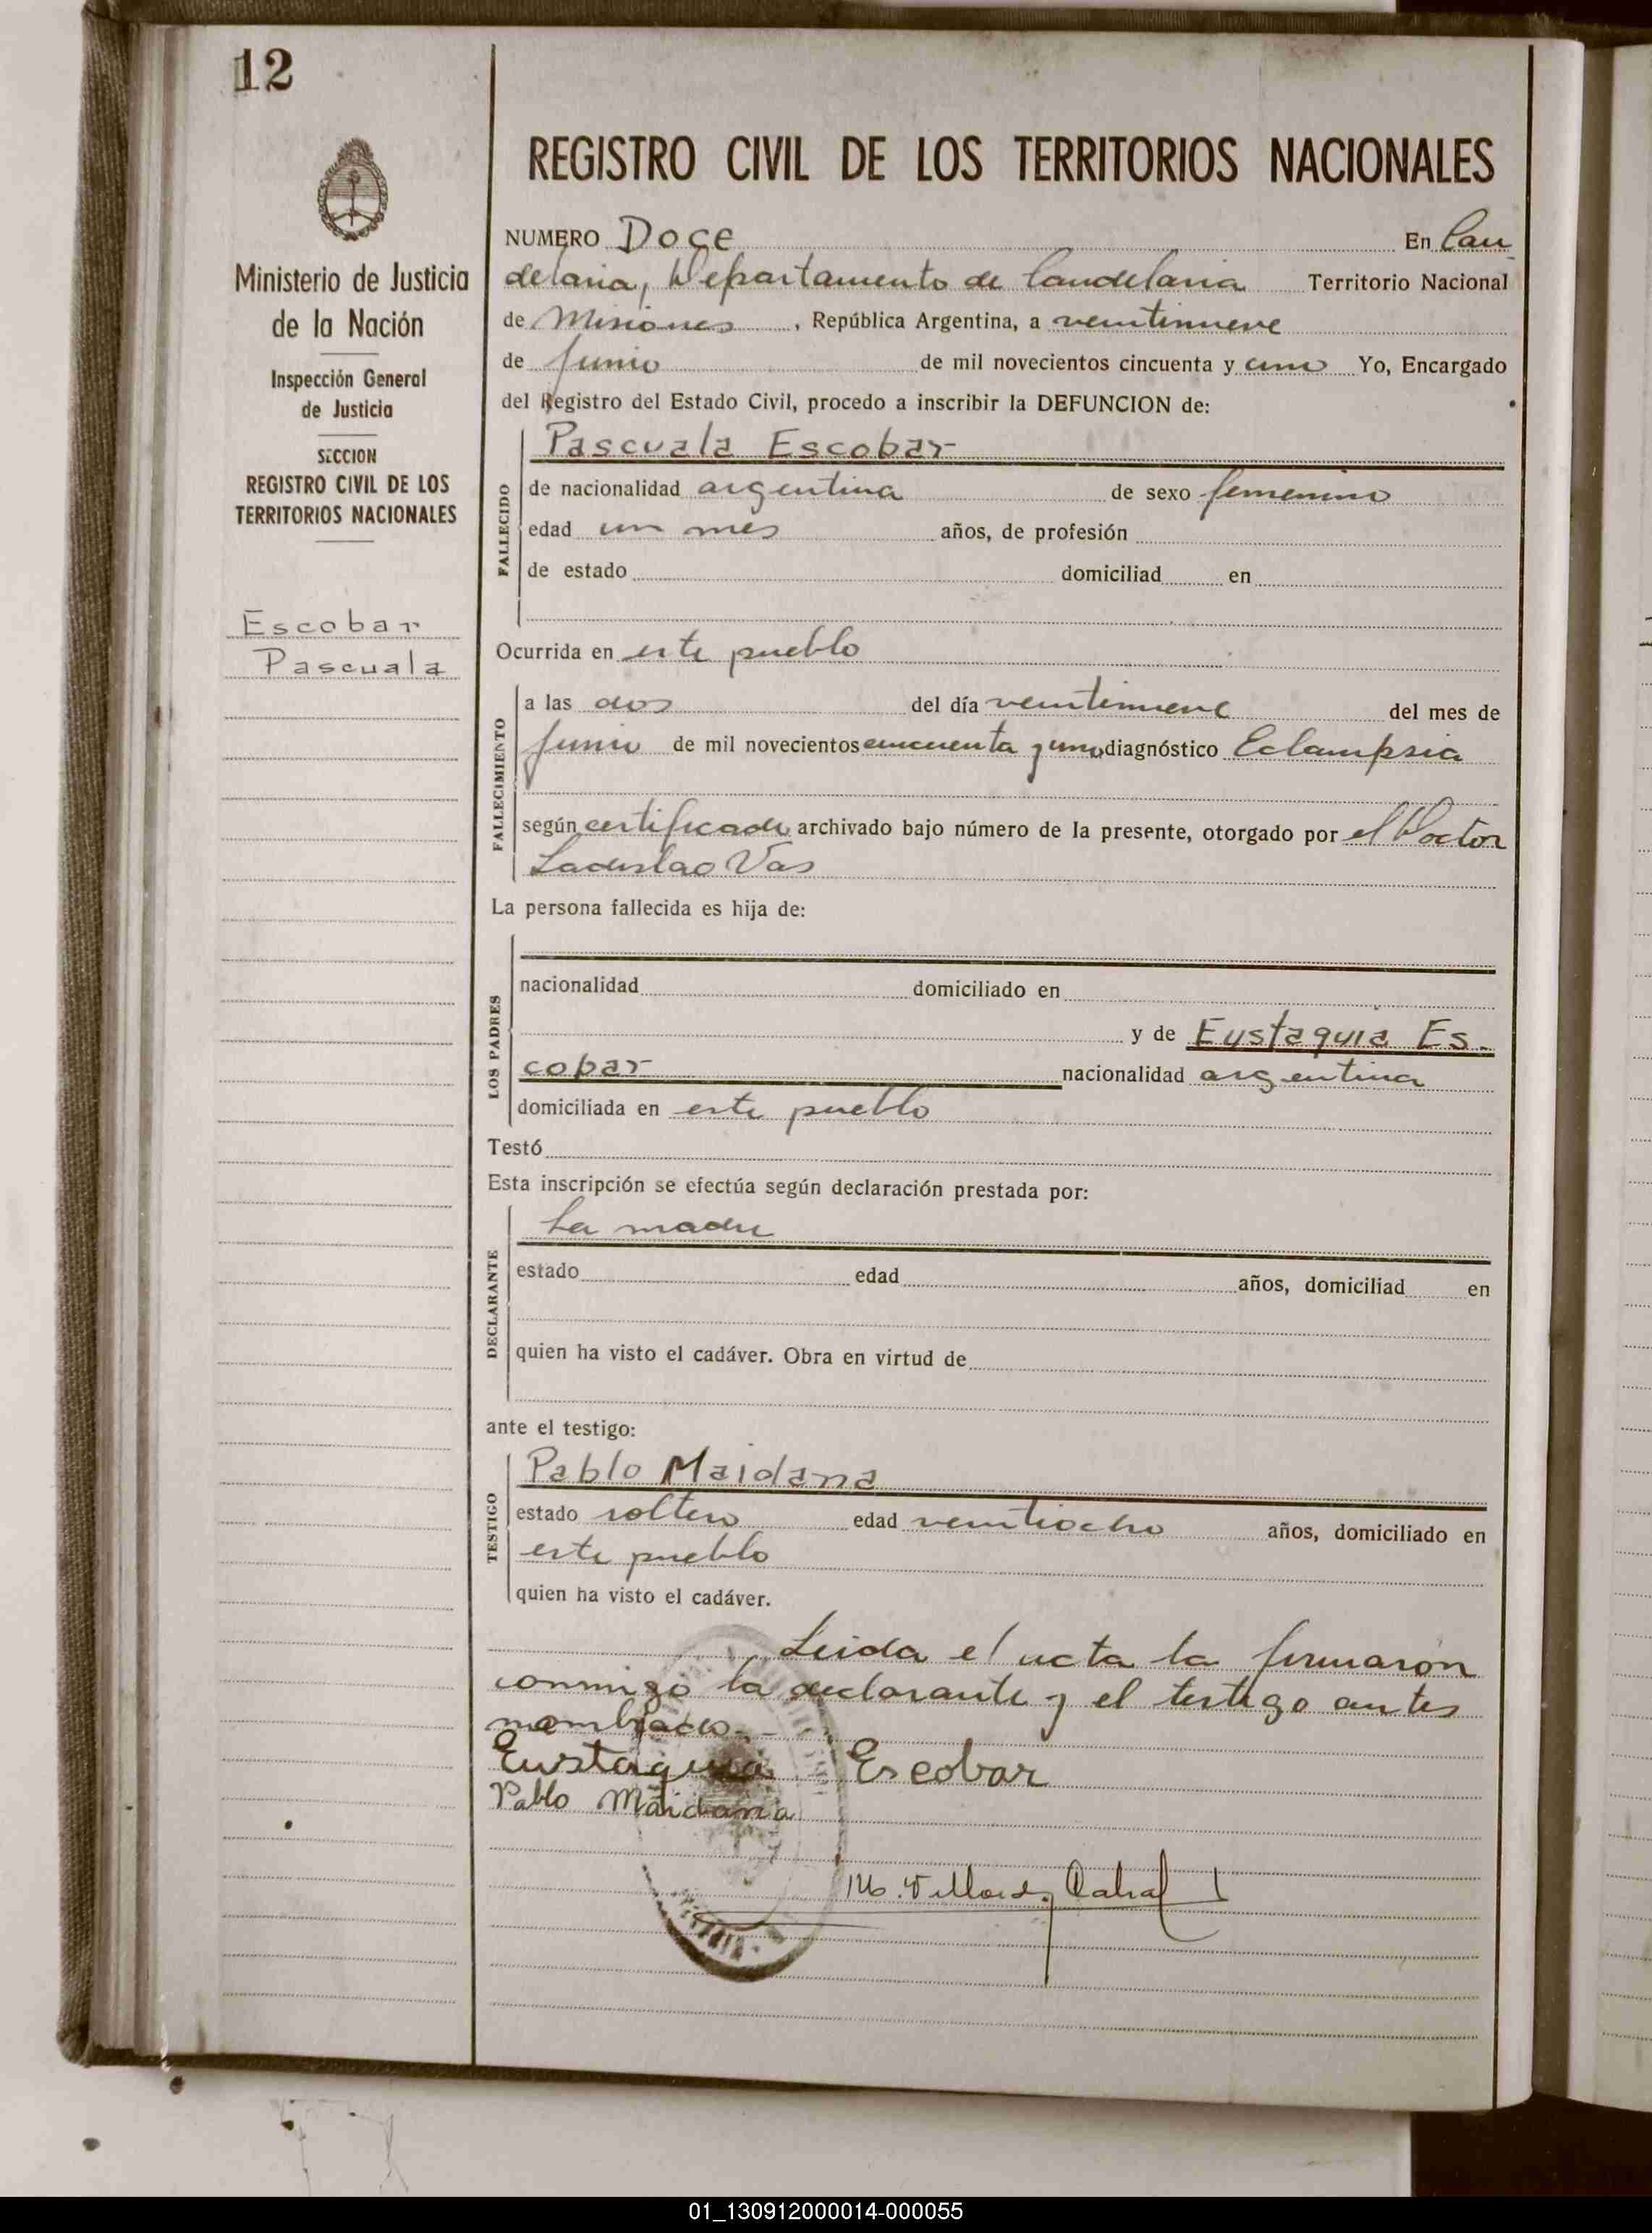 12
Ministerio de Justicia
de la Nación
Inspección General
de Justicia
SECCION
REGISTRO CIVIL DE LOS
TERRITORIOS NACIONALES
Escobar
Pascuala
REGISTRO CIVIL DE LOS TERRITORIOS NACIONALES
NUMERO Doce En Can
delaria, Departamento de Candelaria Territorio Nacional
de Misiones, República Argentina, a veintinueve
de Junio de mil novecientos cincuenta y uno Yo, Encargado
del Registro del Estado Civil, procedo a inscribir la DEFUNCION de:
FALLECIDO
Pascuala Escobar
de nacionalidad argentina de sexo femenino
edad un mes años, de profesión
de estado domiciliad en
Ocurrida en este pueblo
FALLECIMIENTO
a las dos del día veintinueve del mes de
Junio de mil novecientos cincuenta y uno diagnóstico Eclampsia
según certificado archivado bajo número de la presente, otorgado por el Doctor
Ladislao Vas
La persona fallecida es hija de:
LOS PADRES
nacionalidad domiciliado en
y de Eustaquia Es-
cobar nacionalidad argentina
domiciliada en este pueblo
Testó
Esta inscripción se efectúa según declaración prestada por:
DECLARANTE
La madre
estado edad años, domiciliad en
quien ha visto el cadáver. Obra en virtud de
ante el testigo:
TESTIGO
Pablo Maidana
estado soltero edad veintiocho años, domiciliado en
este pueblo
quien ha visto el cadáver.
Leida el acta la firmaron
conmigo la declarante y el testigo antes
nombrado.-
Eustaquia Escobar
Pablo Maidana
Cabral
01_130912000014-000055